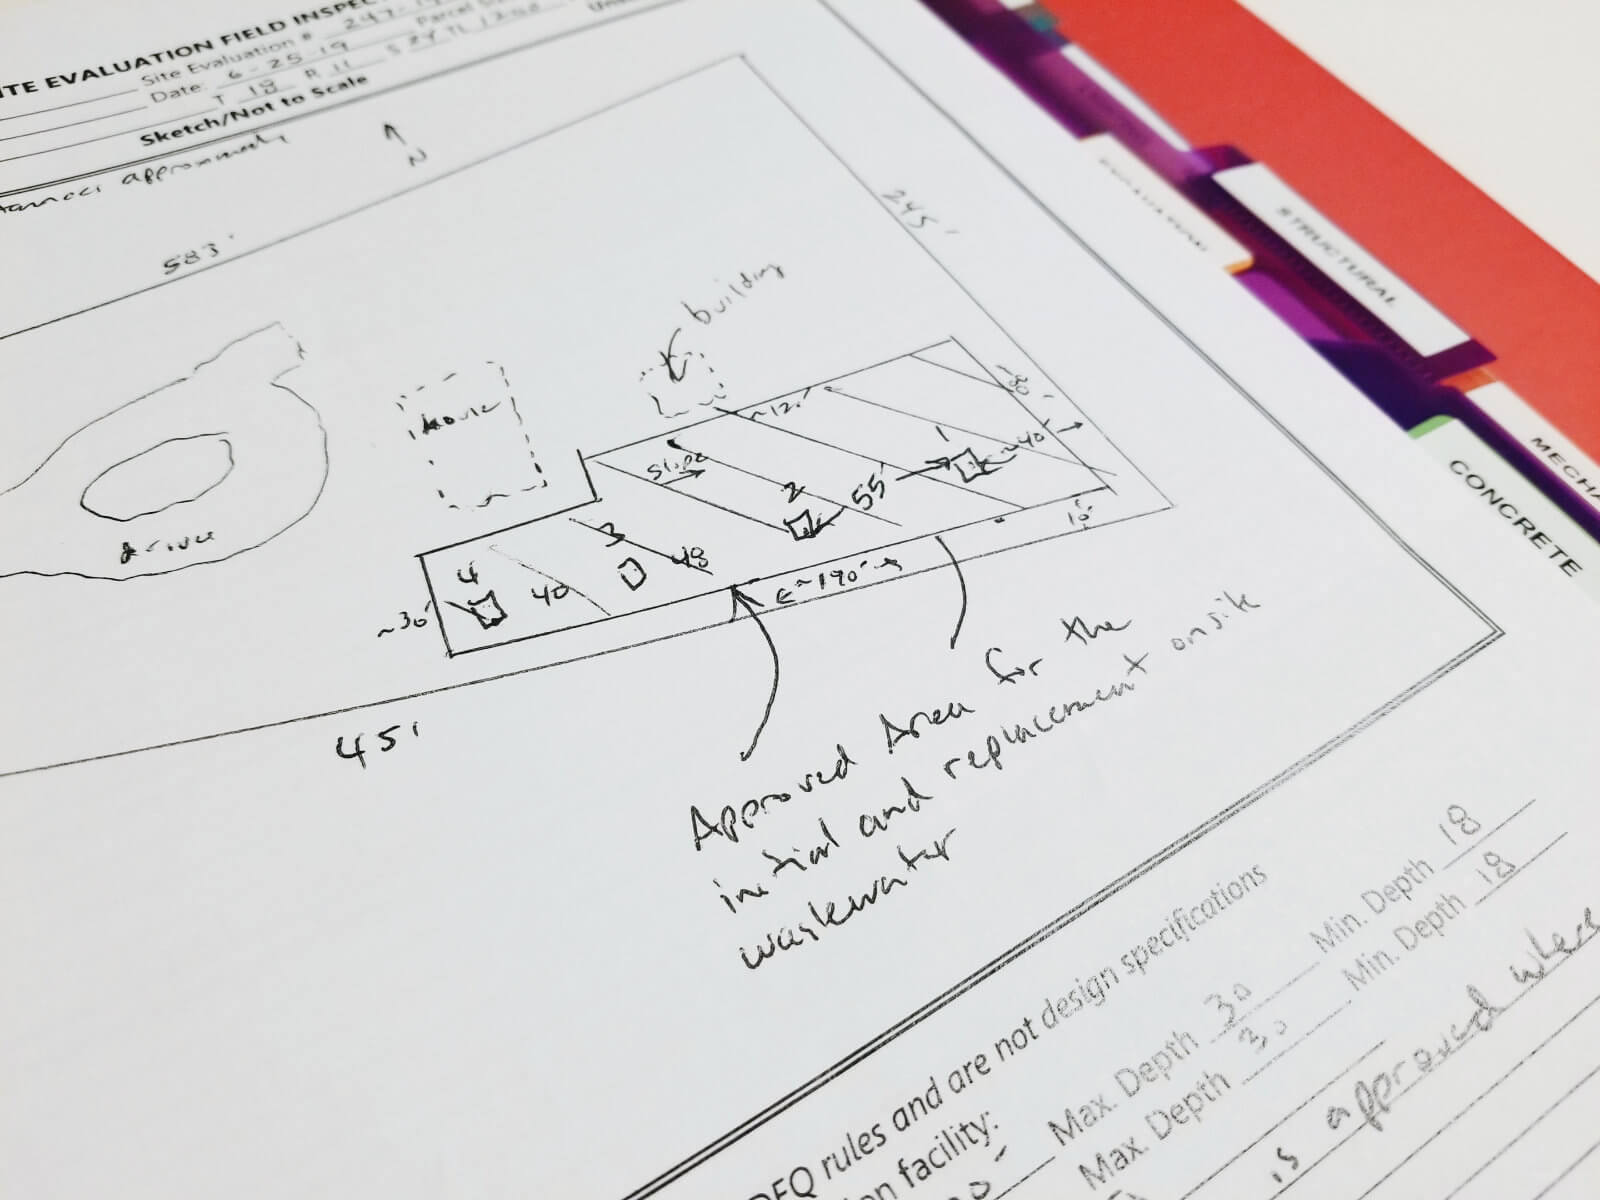 ITE EVALUATION FIELD INSPEC
Site Evaluation # 247-19
Parcel
Date: 6-25-19
T 18 R 11 S
Sketch/Not to Scale
approximate
N
583'
245'
building
house
drive
~80'
~120'
slope
1
~40'
2
55'
3
48
4
40
10'
~30'
~190'
451'
Approved Area for the
initial and replacement onsite
wastewater
DEQ rules and are not design specifications
on facility:
Max. Depth 30 Min. Depth 18
Max. Depth 30 Min. Depth 18
is approved where
STRUCTURAL
CONCRETE
MECHA